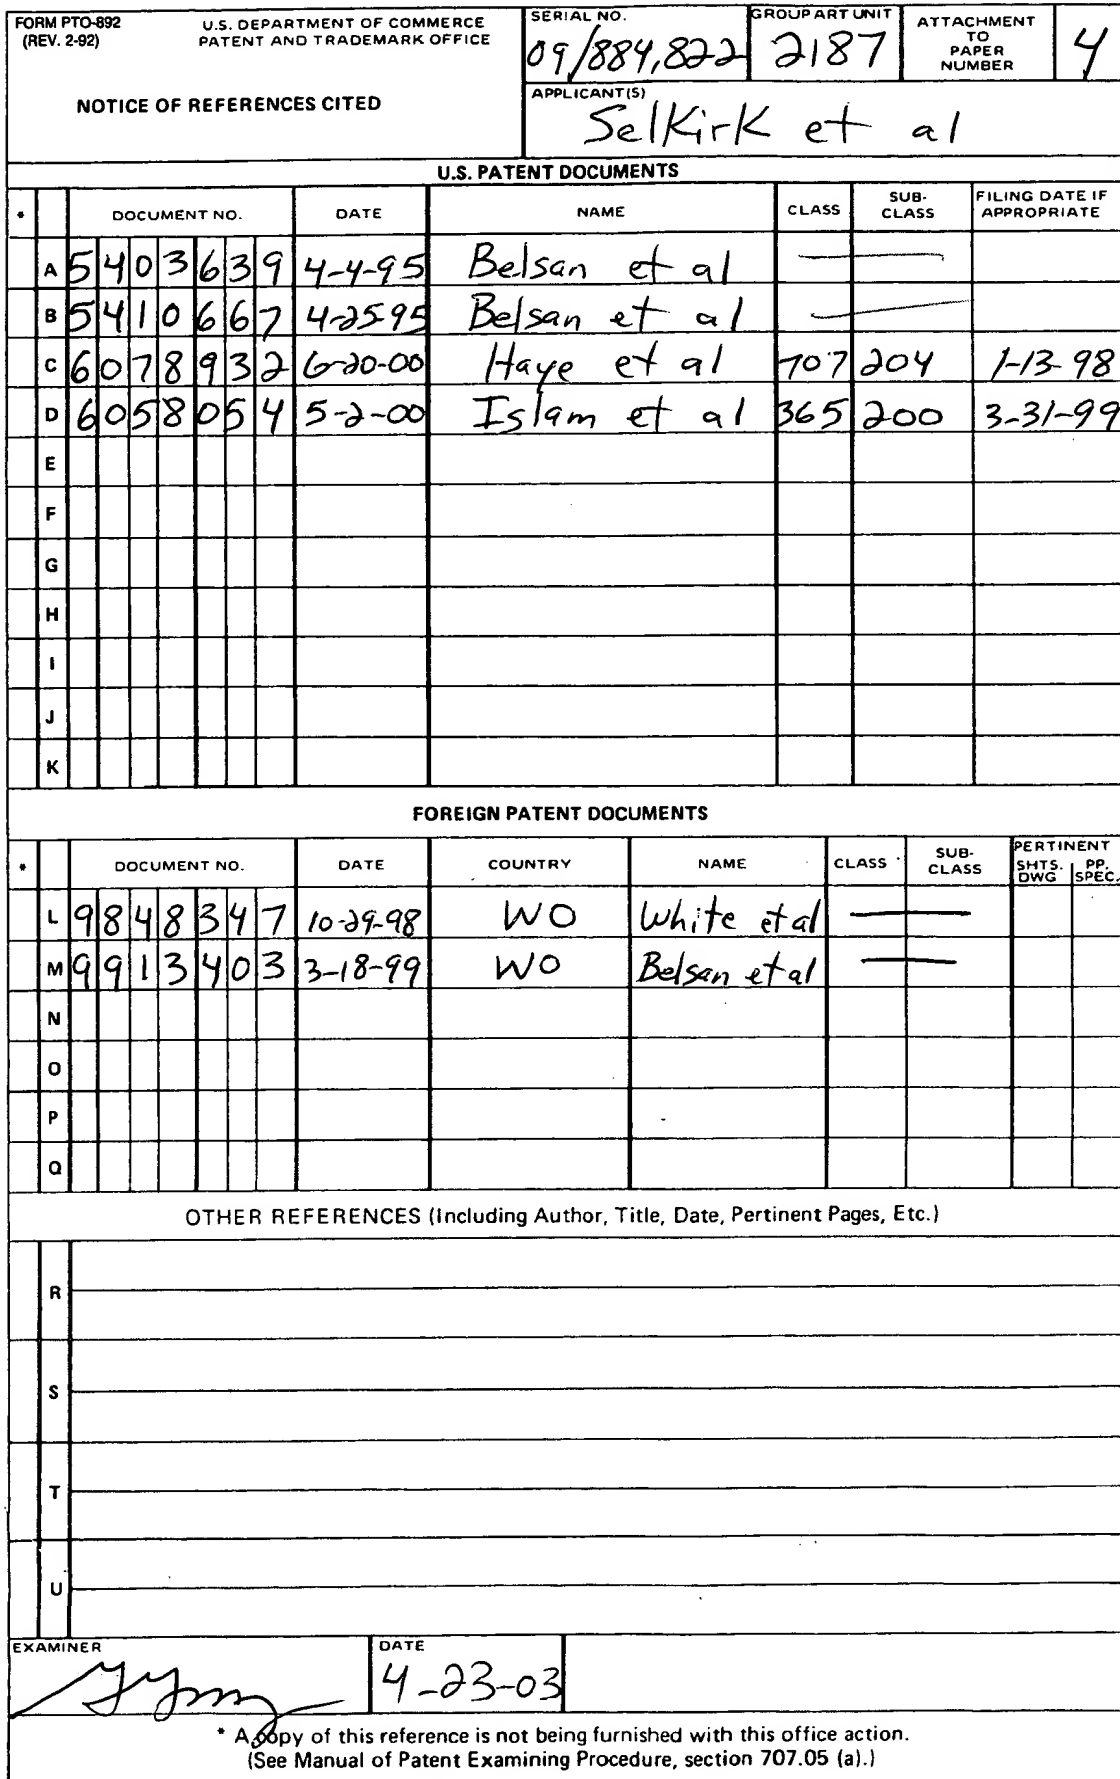 FORM PTO-892 U.S. DEPARTMENT OF COMMERCE
(REV. 2-92) PATENT AND TRADEMARK OFFICE
NOTICE OF REFERENCES CITED
SERIAL NO.
09/884,822
GROUP ART UNIT
2187
ATTACHMENT
TO
PAPER
NUMBER
4
APPLICANT(S)
Selkirk et al
U.S. PATENT DOCUMENTS
* DOCUMENT NO. DATE NAME CLASS SUB-CLASS FILING DATE IF APPROPRIATE
A 5403639 4-4-95 Belsan et al
B 5410667 4-25-95 Belsan et al
C 6078932 6-20-00 Haye et al 707 204 1-13-98
D 6058054 5-2-00 Islam et al 365 200 3-31-99
E
F
G
H
I
J
K
FOREIGN PATENT DOCUMENTS
* DOCUMENT NO. DATE COUNTRY NAME CLASS SUB-CLASS PERTINENT SHTS. DWG PP. SPEC.
L 9848347 10-29-98 WO White et al
M 9913403 3-18-99 WO Belsan et al
N
O
P
Q
OTHER REFERENCES (Including Author, Title, Date, Pertinent Pages, Etc.)
R
S
T
U
EXAMINER
DATE
4-23-03
* A copy of this reference is not being furnished with this office action.
(See Manual of Patent Examining Procedure, section 707.05 (a).)